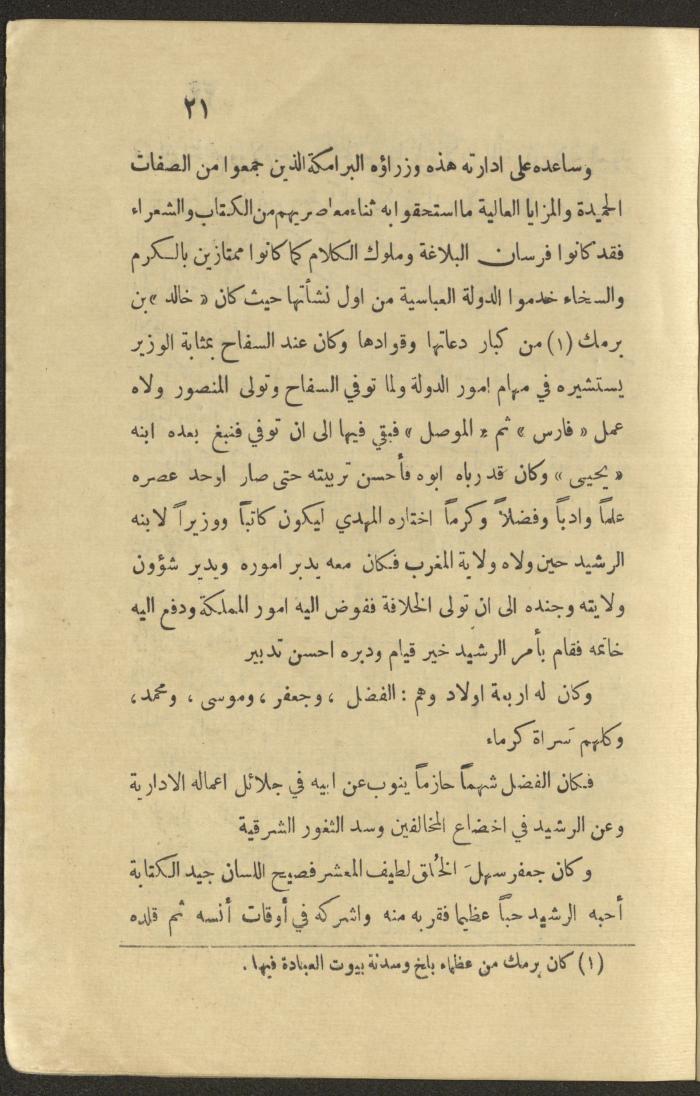 ٢١
وساعده على ادارته هذه وزراؤه البرامكة الذين جمعوا من الصفات
الحميدة والمزايا العالية ما استحقوا به ثناء معاصريهم من الكتاب والشعراء
فقد كانوا فرسان البلاغة وملوك الكلام كما كانوا ممتازين بالكرم
والسخاء خدموا الدولة العباسية من اول نشأتها حيث كان « خالد » بن
برمك (١) من كبار دعاتها وقوادها وكان عند السفاح بمثابة الوزير
يستشيره في مهام امور الدولة ولما توفي السفاح وتولى المنصور ولاه
عمل « فارس » ثم « الموصل » فبقي فيها الى ان توفي فنبغ بعده ابنه
« يحيى » وكان قد رباه ابوه فأحسن تربيته حتى صار اوحد عصره
علماً وادباً وفضلاً وكرماً اختاره المهدي ليكون كاتباً ووزيراً لابنه
الرشيد حين ولاه ولاية المغرب فكان معه يدبر اموره ويدير شؤون
ولايته وجنده الى ان تولى الخلافة ففوض اليه امور المملكة ودفع اليه
خاتمه فقام بأمر الرشيد خير قيام ودبره احسن تدبير
وكان له اربعة اولاد وهم : الفضل ، وجعفر ، وموسى ، ومحمد ،
وكلهم سراة كرماء
فكان الفضل شهماً حازماً ينوب عن ابيه في جلائل اعماله الادارية
وعن الرشيد في اخضاع المخالفين وسد الثغور الشرقية
وكان جعفر سهلَ الخُلق لطيف المعشر فصيح اللسان جيد الكتابة
أحبه الرشيد حباً عظيما فقربه منه واشركه في أوقات أنسه ثم قلده
(١) كان برمك من عظماء بلخ وسدنة بيوت العبادة فيها .